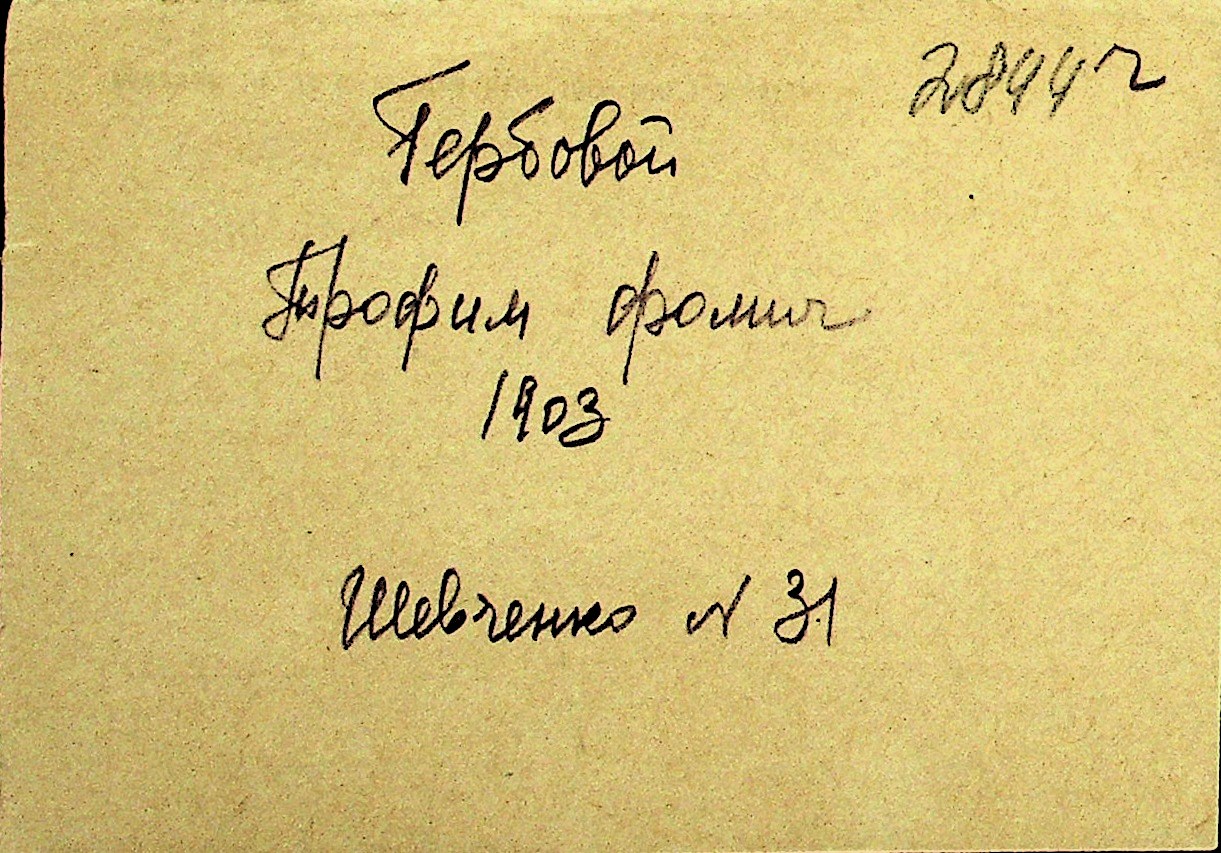 2844 г
Гербовой
Трофим Фомич
1903
Шевченко N 31